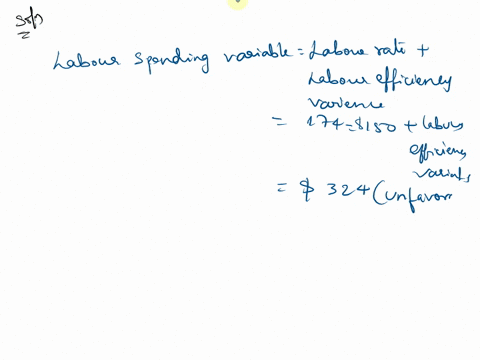 Soln
Labour Sponding variable = Labour rate +
Labour efficiency
varience
= 174 = $150 + labous
efficieny
variats
= $ 324 (unfavor